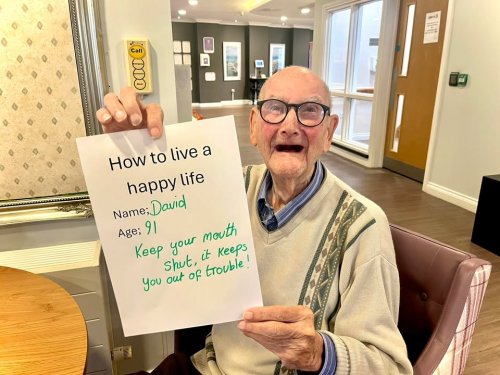 Call
How to live a
happy life
Name: David
Age: 91
Keep your mouth
shut, it keeps
you out of trouble!